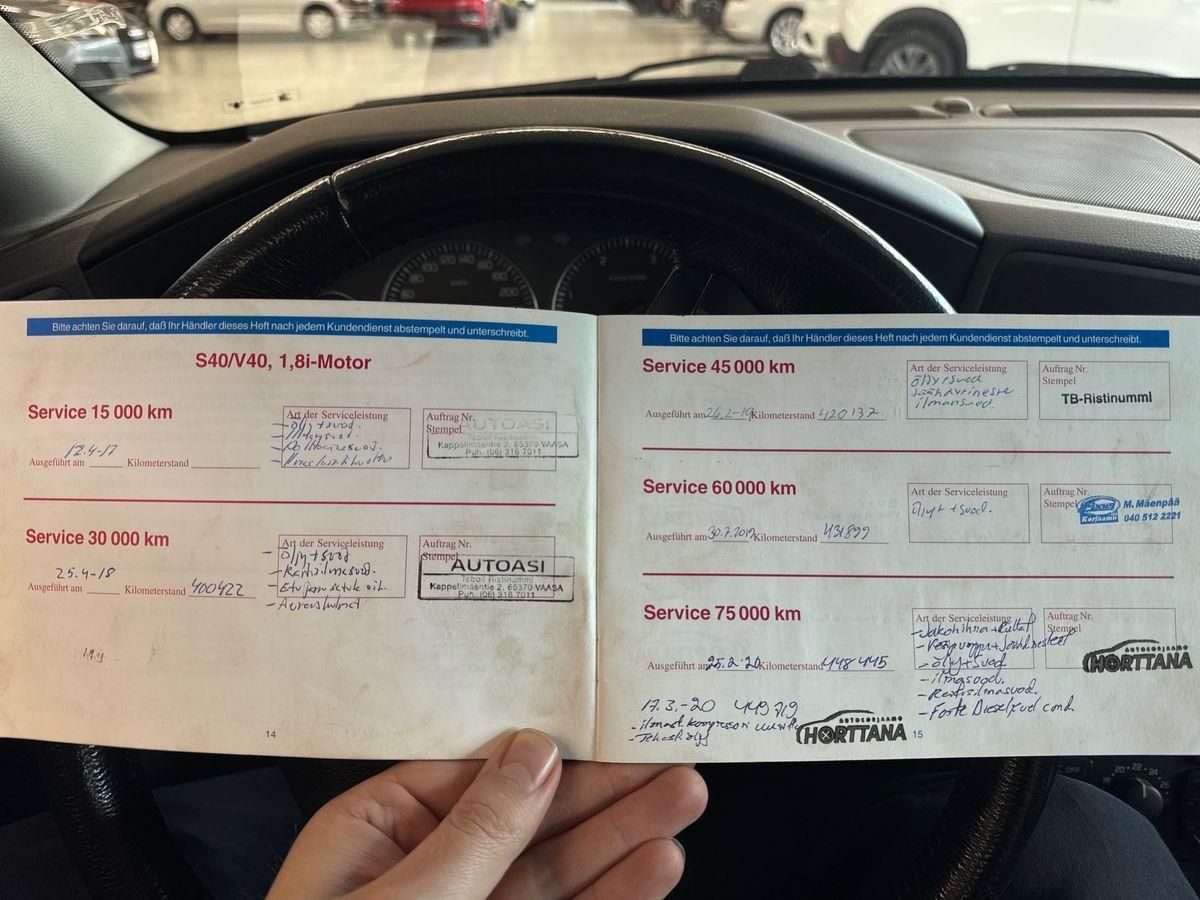 Bitte achten Sie darauf, daß Ihr Händler dieses Heft nach jedem Kundendienst abstempelt und unterschreibt.
S40/V40, 1,8i-Motor
Service 15 000 km
12.4-17
Ausgeführt am
Kilometerstand
Art der Serviceleistung
- öljy+suod.
Auftrag Nr.
Stempel
AUTOASI
Teboil Ristinummi
Kappelinmäentie 2, 65370 VAASA
Puh. (06) 316 7011
Service 30 000 km
25.4-18
Ausgeführt am
Kilometerstand 400422
Art der Serviceleistung
- Öljy+suod
- Raitisilmasuod.
Auftrag Nr.
Stempel
AUTOASI
Teboil Ristinummi
Kappelinmäentie 2, 65370 VAASA
Puh. (06) 316 7011
14
Bitte achten Sie darauf, daß Ihr Händler dieses Heft nach jedem Kundendienst abstempelt und unterschreibt.
Service 45 000 km
Ausgeführt am 26.2-19 Kilometerstand 420137
Art der Serviceleistung
öljy+suod
jäähdytinneste
ilmansuod.
Auftrag Nr.
Stempel
TB-Ristinummi
Service 60 000 km
Ausgeführt am 30.7.2019 Kilometerstand 431899
Art der Serviceleistung
öljyt + suod.
Auftrag Nr.
Stempel
Korjaamo
M. Mäenpää
040 512 2221
Service 75 000 km
Ausgeführt am 25.2-20 Kilometerstand 448445
Art der Serviceleistung
- Jakohihna+Rullat
- Vesipumppu+Jäähd.nesteet
- öljy+suod
- ilmansuod.
- Raitisilmasuod.
- Forte Diesel fuel cond.
Auftrag Nr.
Stempel
AUTOKORJAAMO
HORTTANA
17.3.-20 449719
- ilmast. kompressori
- Tehost. öljy
AUTOKORJAAMO
HORTTANA
15